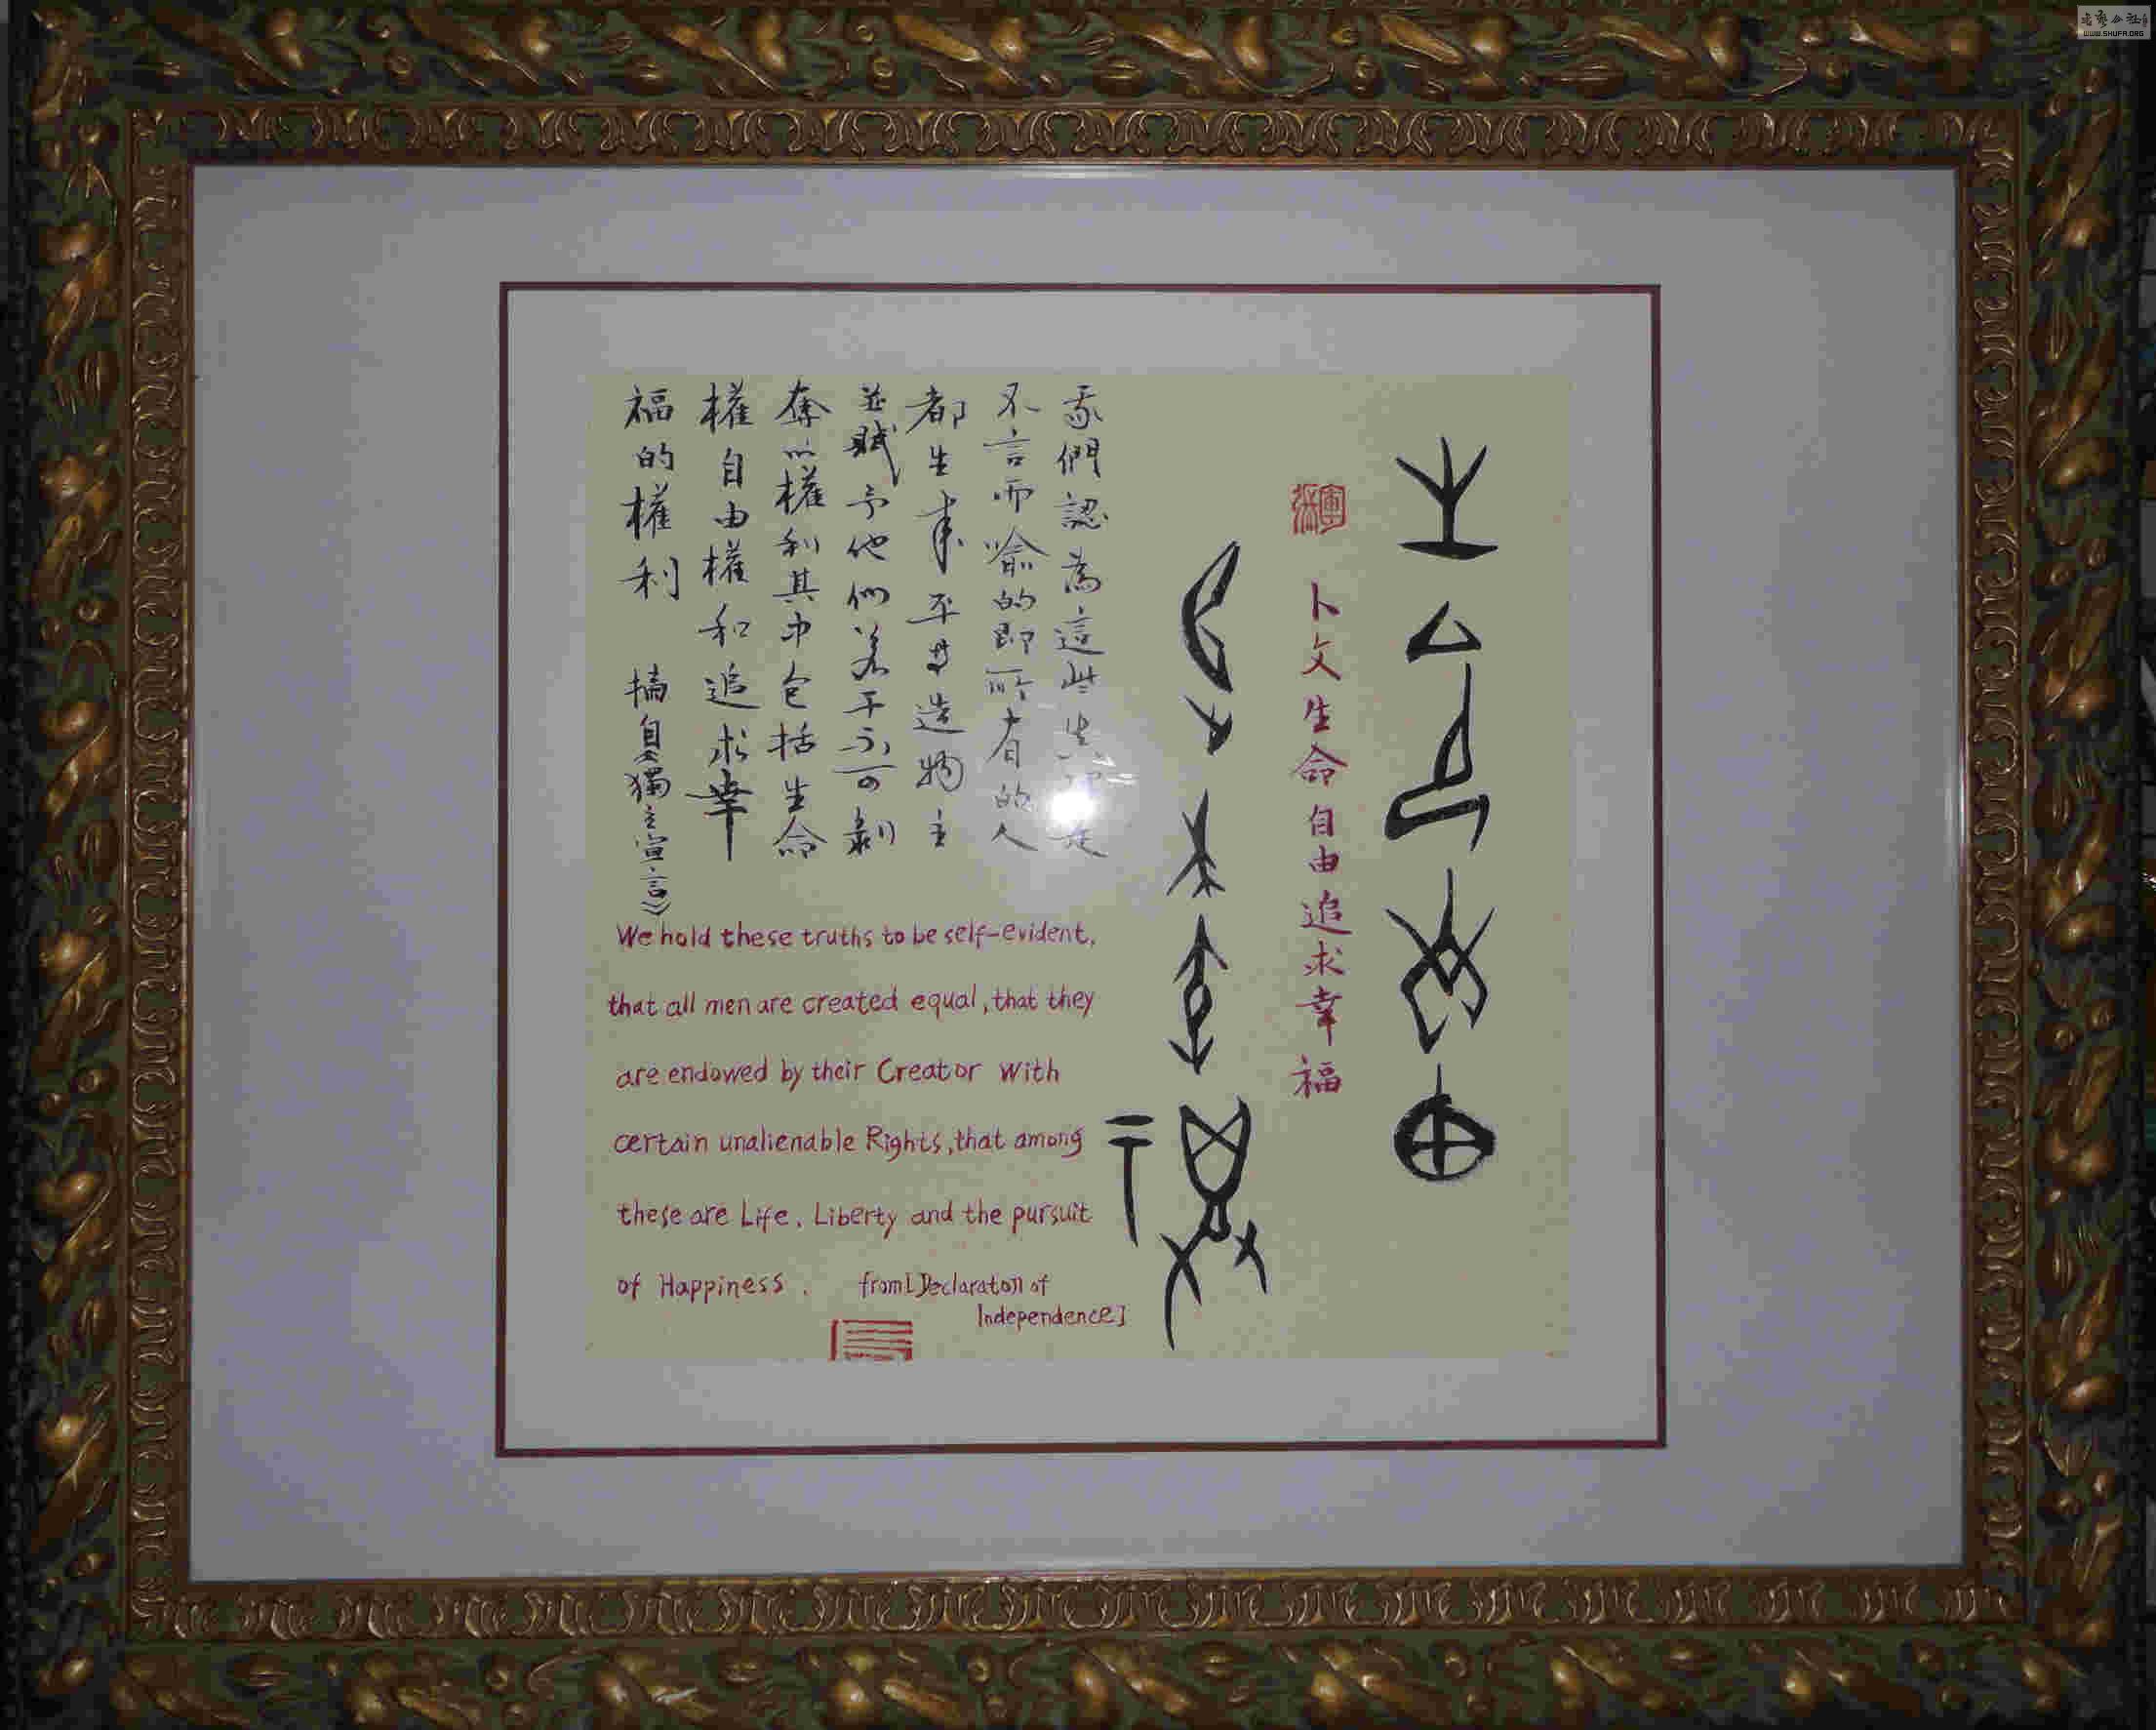 生命自由
卜文生命自由追求幸福
追求幸福
我們認為這些是
不言而喻的即所有的人
都生來平等造物主
並賦予他們若干不可剝
奪的權利其中包括生命
權自由權和追求幸
福的權利 摘自《獨立宣言》
We hold these truths to be self-evident,
that all men are created equal, that they
are endowed by their Creator with
certain unalienable Rights, that among
these are Life, Liberty and the pursuit
of Happiness. from[Declaraton of
Independence]
WWW.SHUFA.ORG